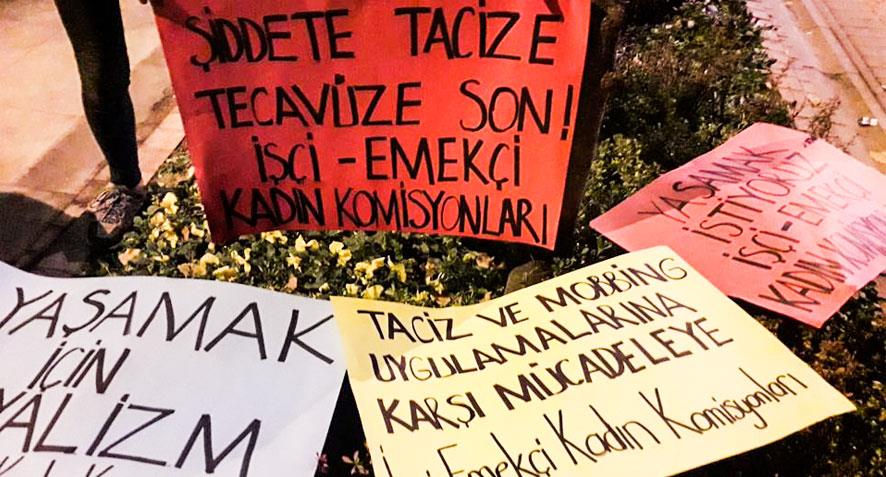 ŞİDDETE TACİZE
TECAVÜZE SON!
İŞÇİ - EMEKÇİ
KADIN KOMİSYONLARI
YAŞAMAK
İSTİYORUZ
İŞÇİ - EMEKÇİ
KADIN
YAŞAMAK
İÇİN
YALİZM
TACİZ VE MOBBİNG
UYGULAMALARINA
KARŞI MÜCADELEYE
Emekçi Kadın Komisyonları